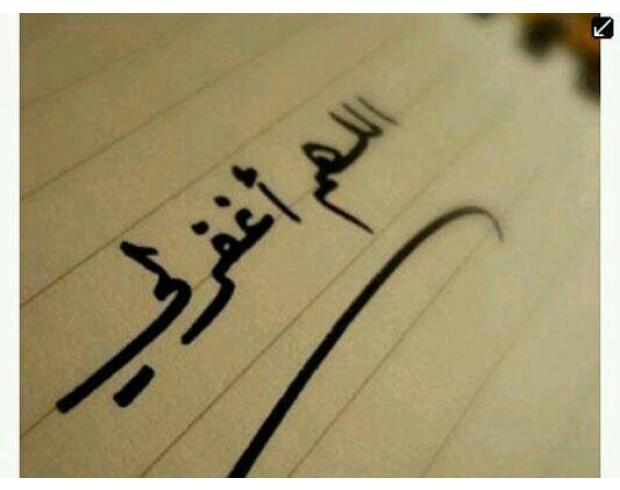 اللهم أغفر لي